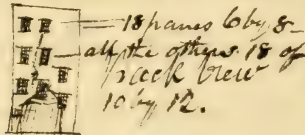 18 panes 6 by 8
all the others 18 of
back view
10 by 12.